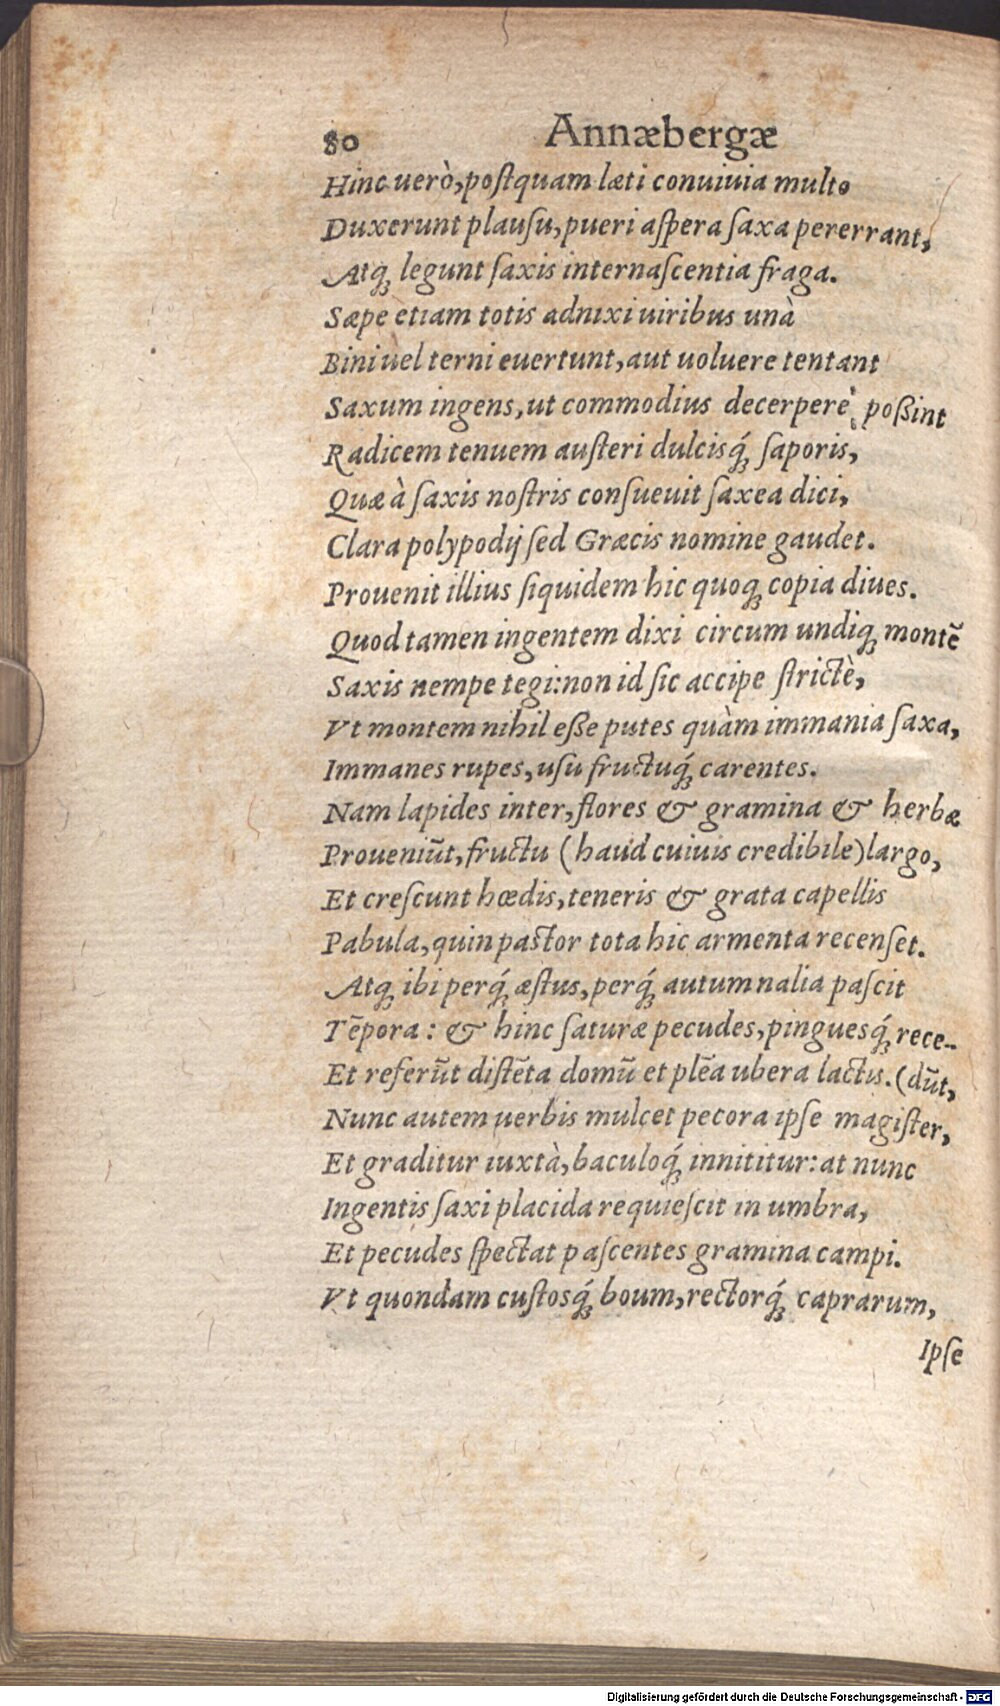 80 Annæbergæ
Hinc uerò, postquam læti conuiuia multo
Duxerunt plausu, pueri aspera saxa pererrant,
Atq; legunt saxis internascentia fraga.
Sæpe etiam totis adnixi uiribus unà
Bini uel terni euertunt, aut uoluere tentant
Saxum ingens, ut commodius decerpere possint
Radicem tenuem austeri dulcisq́; saporis,
Quæ à saxis nostris consueuit saxea dici,
Clara polypodij sed Græcis nomine gaudet.
Prouenit illius siquidem hic quoq; copia diues.
Quod tamen ingentem dixi circum undiq; montē
Saxis nempe tegi: non id sic accipe strictè,
Vt montem nihil esse putes quàm immania saxa,
Immanes rupes, usu fructuq́; carentes.
Nam lapides inter, flores & gramina & herbæ
Proueniūt, fructu (haud cuiuis credibile) largo,
Et crescunt hœdis, teneris & grata capellis
Pabula, quin pastor tota hic armenta recenset.
Atq; ibi perq́; æstus, perq́; autumnalia pascit
Tēpora: & hinc saturæ pecudes, pinguesq́; rece-
Et referūt distēta domū et plēa ubera lactis. (dūt,
Nunc autem uerbis mulcet pecora ipse magister,
Et graditur iuxtà, baculoq́; innititur: at nunc
Ingentis saxi placida requiescit in umbra,
Et pecudes spectat pascentes gramina campi.
Vt quondam custosq́; boum, rectorq́; caprarum,
Ipse
Digitalisierung gefördert durch die Deutsche Forschungsgemeinschaft - DFG